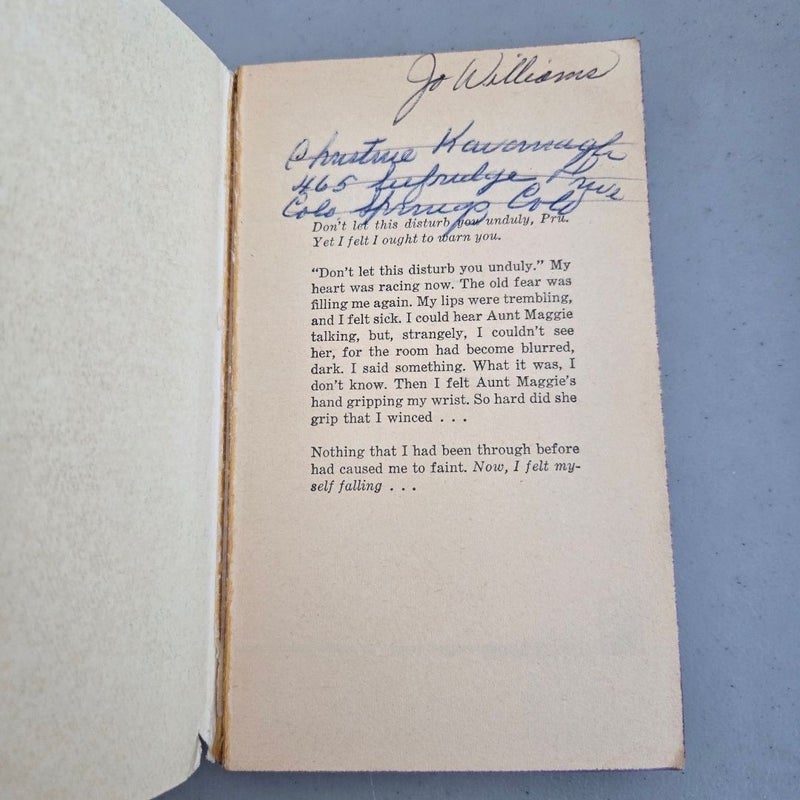 Jo Williams
Christine Kavanagh
465 Ave
Colo. Springs Colo
Don't let this disturb you unduly, Pru.
Yet I felt I ought to warn you.
"Don't let this disturb you unduly." My
heart was racing now. The old fear was
filling me again. My lips were trembling,
and I felt sick. I could hear Aunt Maggie
talking, but, strangely, I couldn't see
her, for the room had become blurred,
dark. I said something. What it was, I
don't know. Then I felt Aunt Maggie's
hand gripping my wrist. So hard did she
grip that I winced . . .
Nothing that I had been through before
had caused me to faint. Now, I felt my-
self falling . . .